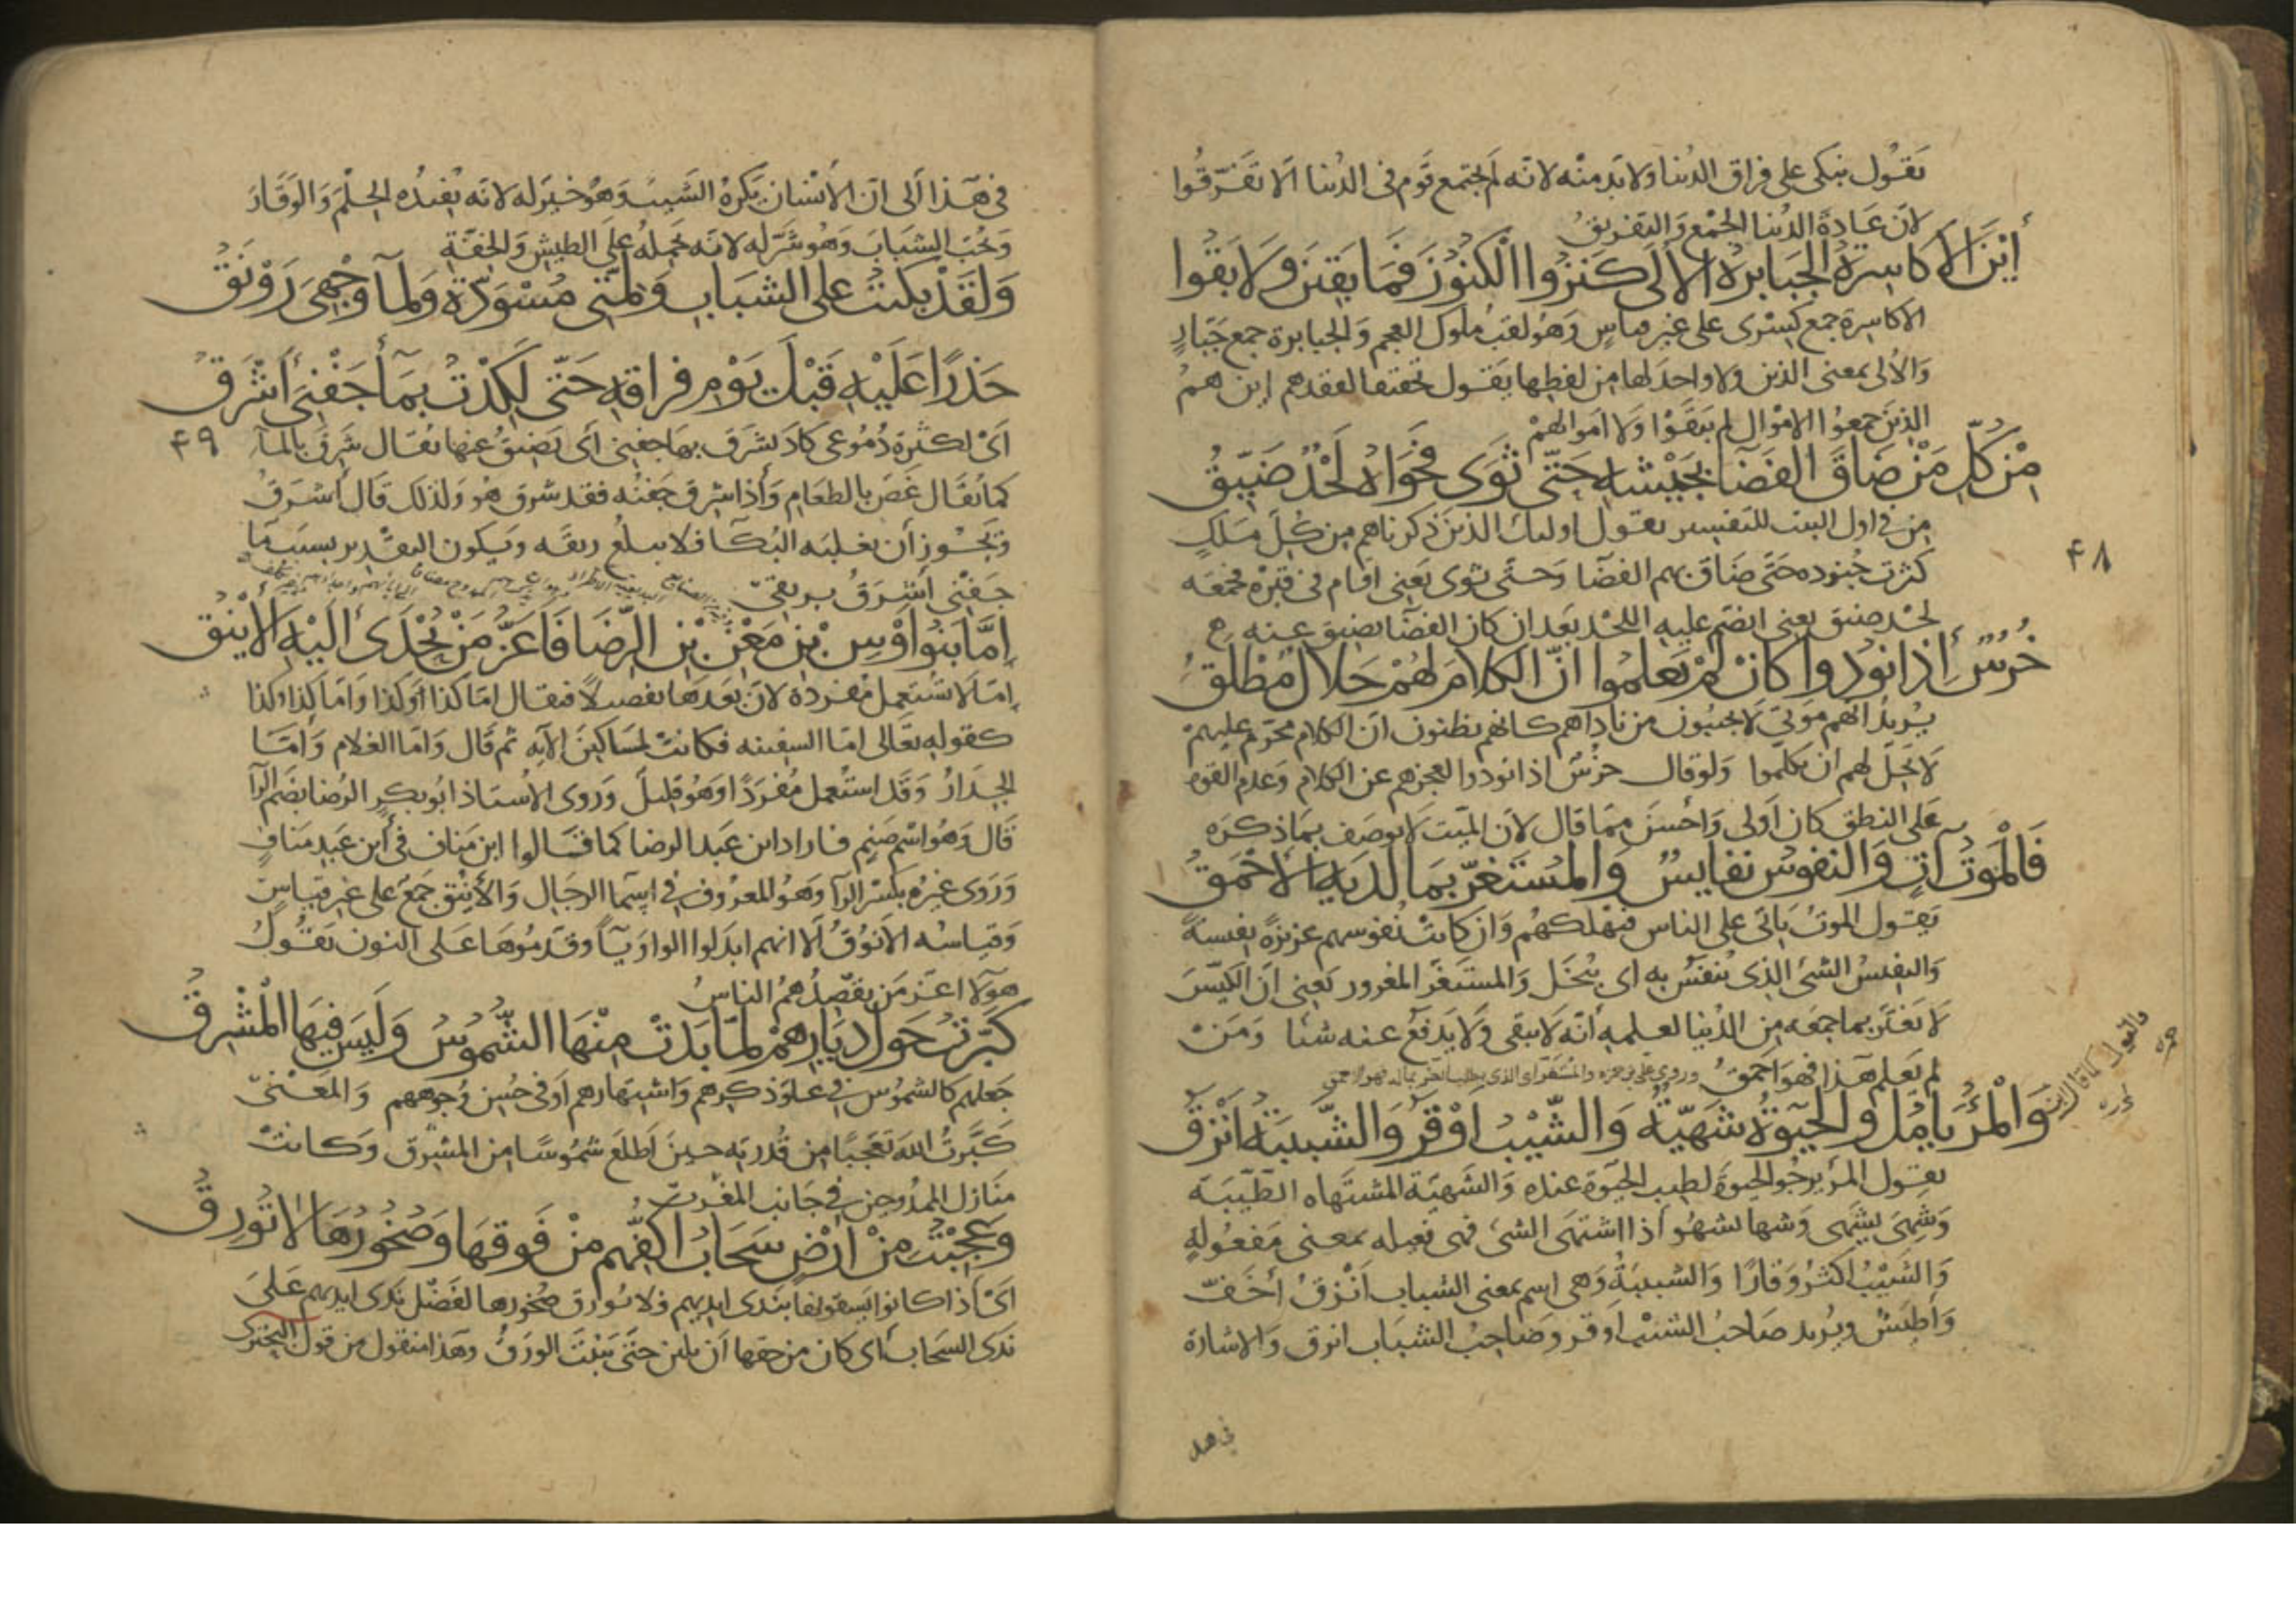 يَقُول نبكي على فراق الدنيا ولا بد منه لانه لم يجتمع قوم في الدنيا الا تفرقوا
لان عادة الدنيا الجمع والتفريق
أين الأكاسرة الجبابرة الألى كنزوا الكنوز فما بقين ولا بقوا
الاكاسرة جمع كسرى على غير قياس وهو لقب ملوك العجم والجبابرة جمع جبار
والالى بمعنى الذين ولا واحد لها من لفظها يقول تحقيقا لفقدهم اين هم
الذين جمعوا الاموال لم يبقوا ولا اموالهم
من كل من ضاق الفضا بجيشه حتى ثوى فحواه لحد ضيق
من في اول البيت للتفسير يقول اولئك الذين ذكرناهم من كل ملك
كثرت جنوده حتى ضاق بهم الفضا وحتى ثوى يعني اقام في قبره فجمعه
لحد ضيق يعني انضم عليه اللحد بعد ان كان الفضا يضيق عنه
خرس إذا نودوا كأن لم يعلموا ان الكلام لهم حلال مطلق
يريد انهم موتى لا يجيبون من ناداهم كانهم يظنون ان الكلام محرم عليهم
لا يحل لهم ان يتكلموا ولو قال خرس اذا نودوا لعجزهم عن الكلام وعدم القوه
على النطق كان اولى واحسن مما قال لان الميت لا يوصف بما ذكره
فالموت آت والنفوس نفايس والمستغر بما لديه الاحمق
يقول الموت ياتي على الناس فيهلكهم وان كانت نفوسهم عزيزة نفيسة
والنفيس الشئ الذي ينفس به اى يبخل والمستغر المغرور يعني ان الكيس
لا يغتر بما جمعه من الدنيا لعلمه انه لا يبقى ولا يدفع عنه شيئا ومن
لم يعلم هذا فهو احمق وروى علي بن حمزه والمستعز اى الذي يطلب العز بماله فهو الاحمق
والمرء يامل والحيوة شهية والشيب اوقر والشبيبة انزق
يقول المرء يرجو الحيوة لطيب الحيوة عنده والشهية المشتهاه الطيبة
وشهى يشهى وشها يشهو اذا اشتهى الشئ فهى فعيله بمعنى مفعولة
والشيب اكثر وقارا والشبيبة وهى اسم بمعنى الشباب انزق أخف
وأطيش ويريد صاحب الشيب اوقر وصاحب الشباب انزق والاشارة
في هذ
٤٨
في هذا الى ان الانسان يكره الشيب وهو خير له لانه يفيده الحلم والوقار
ويحب الشباب وهو شر له لانه يحمله على الطيش والخفة
ولقد بكيت على الشباب ولمتي مسودة ولماء وجهي رونق
حذرا عليه قبل يوم فراقه حتى لكدت بماء جفني أشرق
٤٩
اى لكثرة دموعي كاد يشرق بها جفني اى يضيق عنها يقال شرق بالماء
كما يقال غص بالطعام وإذا شرق جفنه فقد شرق هو ولذلك قال أشرق
ويجوز أن يغلبه البكا فلا يبلع ريقه ويكون التقدير بسبب ما
جفني أشرق بريقي
إما بنوا أوس بن معن بن الرضا فاعز من تحدى اليه الاينق
إما لا تستعمل مفردة لان بعدها تفصيلا فيقال اما كذا اوكذا واما كذا وكذا
كقوله تعالى اما السفينه فكانت لمساكين الآيه ثم قال واما الغلام واما
الجدار وقد استعمل مفردا وهو قليل وروى الاستاذ ابو بكر الرضا بضم الرا
قال وهو اسم صنم فاراد ابن عبد الرضا كما قالوا ابن مناف في ابن عبد مناف
وروى غيره بكسر الرا وهو المعروف في اسما الرجال والأينق جمع على غير قياس
وقياسه الانوق الا انهم ابدلوا الواو يا وقدموها على النون يقول
هولا اعز من يقصدهم الناس
كبرت حول ديارهم لما بدت منها الشموس وليس فيها المشرق
جعلهم كالشموس في علو ذكرهم واشتهارهم او في حسن وجوههم والمعنى
كبرت الله تعجبا من قدرته حين أطلع شموسا من المشرق وكانت
منازل الممدوحين في جانب المغرب
وعجبت من ارض سحاب اكفهم من فوقها وصخورها لا تورق
اى اذا كانوا يسقونها بندى ايديهم فلا تورق صخورها لفضل ندى ايديهم على
ندى السحاب اى كان من حقها ان تلين حتى تنبت الورق وهذا منقول من قول البحتري